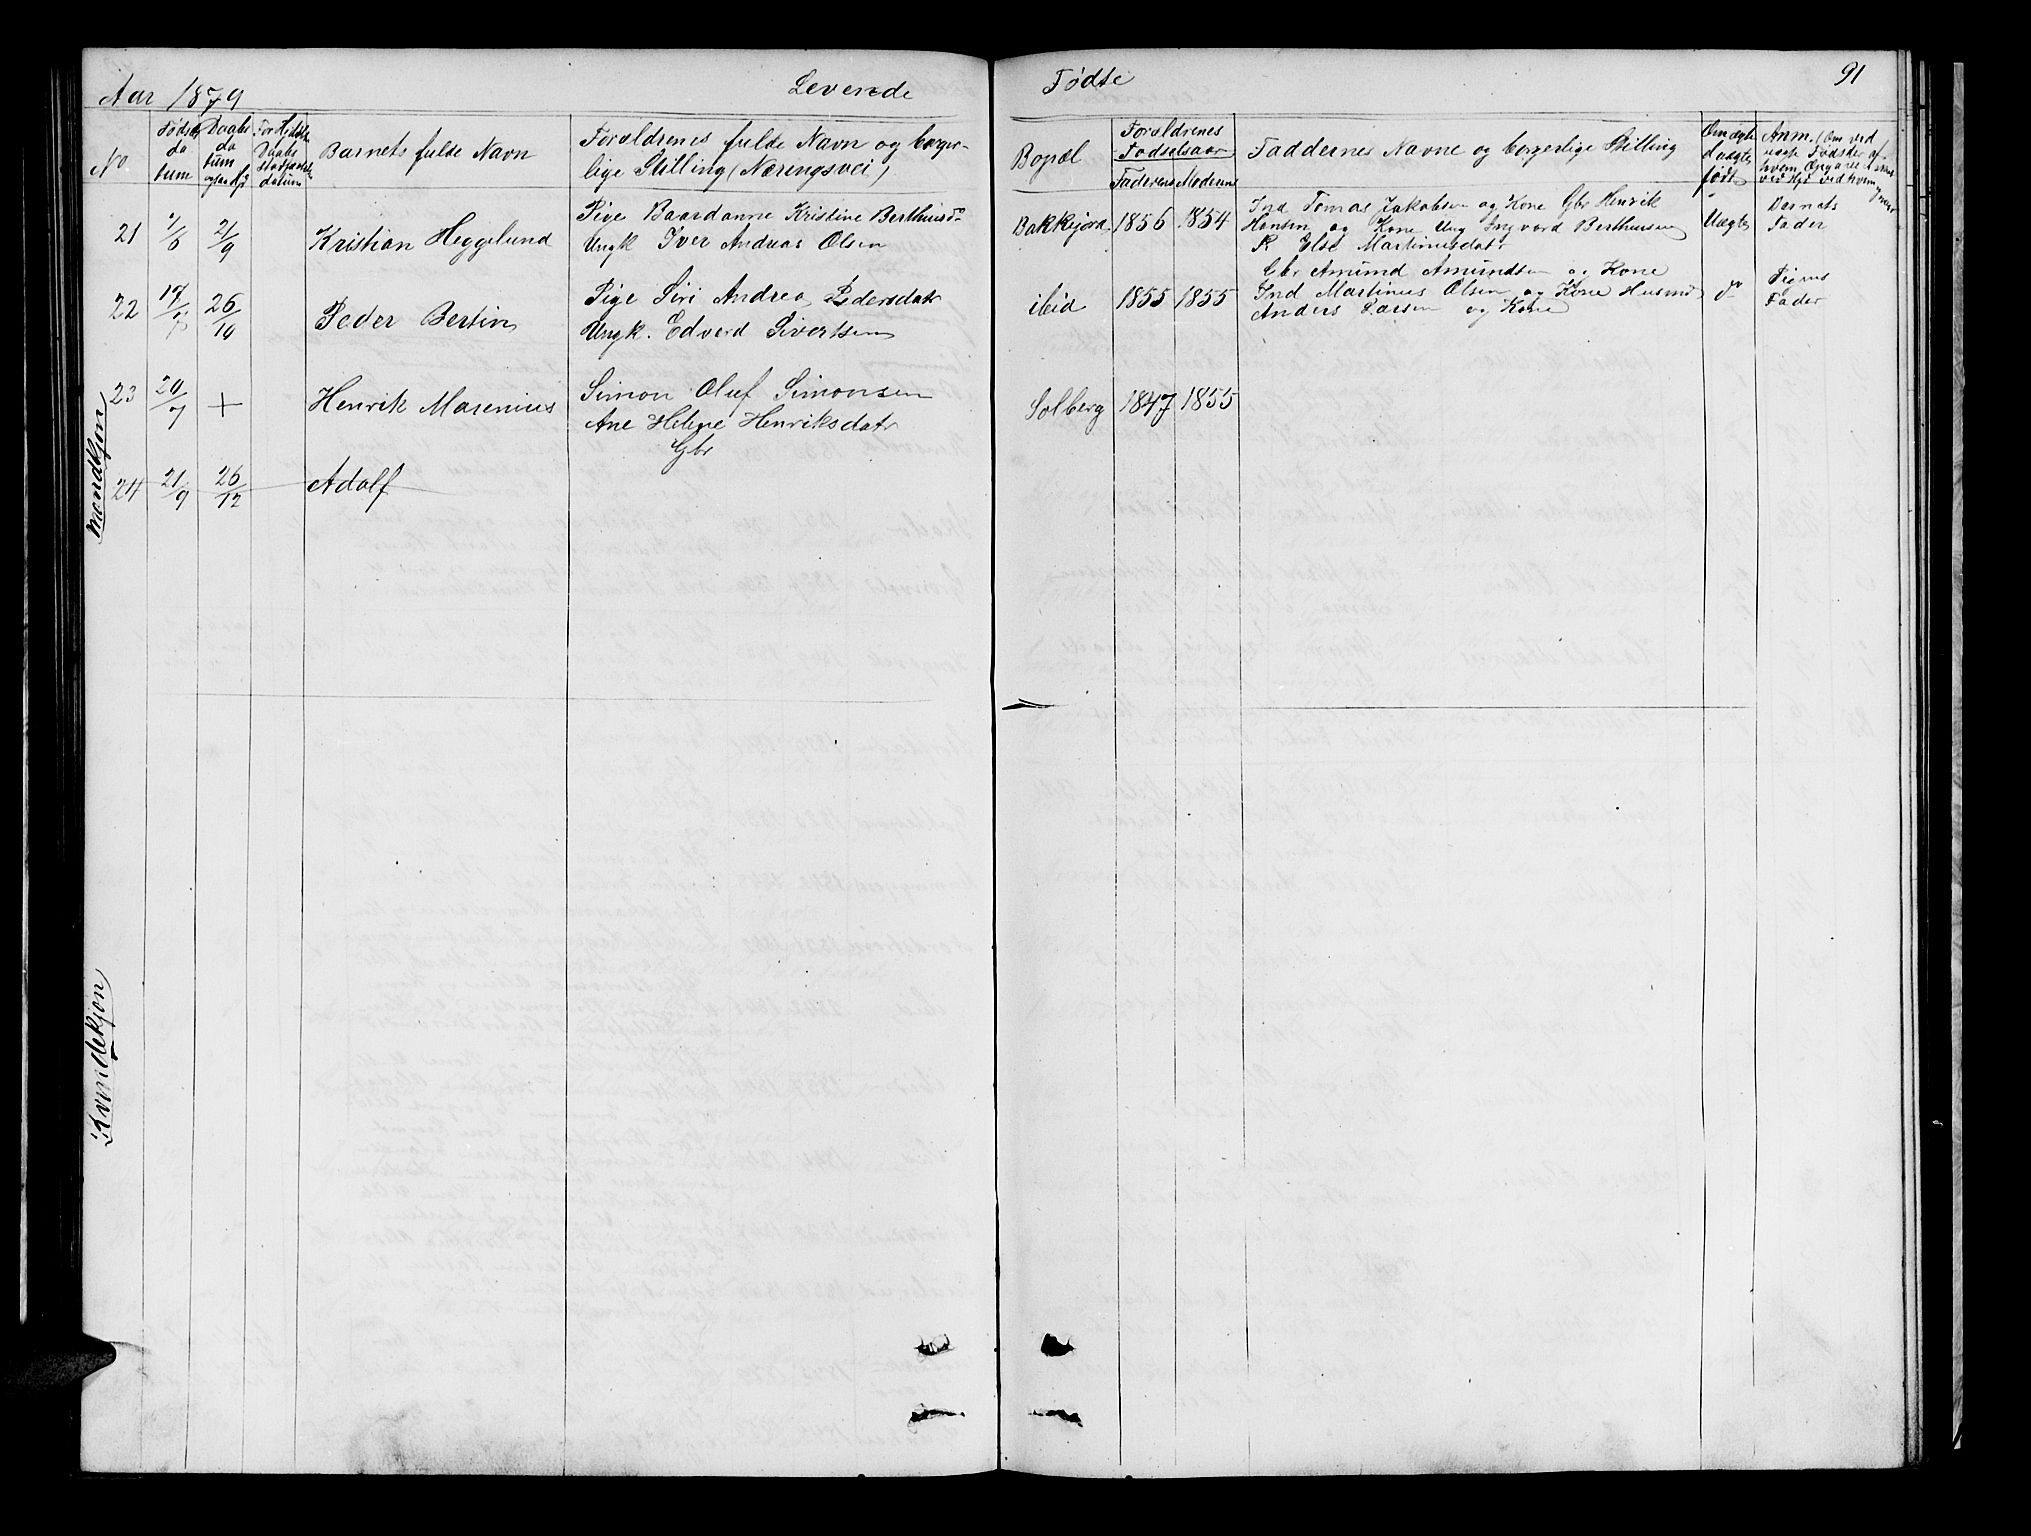 Aar 1879 Levende Fødte 91
No Fødsels da tum Daabs da tum Barnets fulde Navn Forældrenes fulde Navn og borger-
lige Stilling (Næringsvei) Bopæl Forældrenes Fødselsaar Faderens Moderens Faddernes Navne og borgerlige Stilling Om ægte uægte født Anm.
Mandkjøn
21 7/6 21/9 Kristian Heggelund
Pige Baardanne Kristine Berthusdr
Ungk Iver Andreas Olsen
Bakkejord 1856 1854
Ind Tomas Jakobsen og Kone Gbr Henrik
Hansen og Kone Ung Ingvard Berthusen
P. Else Martinusdatr
Uægte
Barnets
Fader
22 26/10 Peder Bertin
Pige Siri Andrea Pedersdatr
Ungk. Edverd Sivertsen
ibid 1855 1855
Gbr Amund Amundsen og Kone
Ind Martinus Olsen og Kone Husmd
Anders Larsen og Kone
do
Pigens
Fader
23 20/7 + Henrik Marenius
Simon Oluf Simonsen
Ane Helene Henriksdatr
Gbr
Solberg 1847 1855
24 21/9 26/12 Adolf
Kvindekjøn